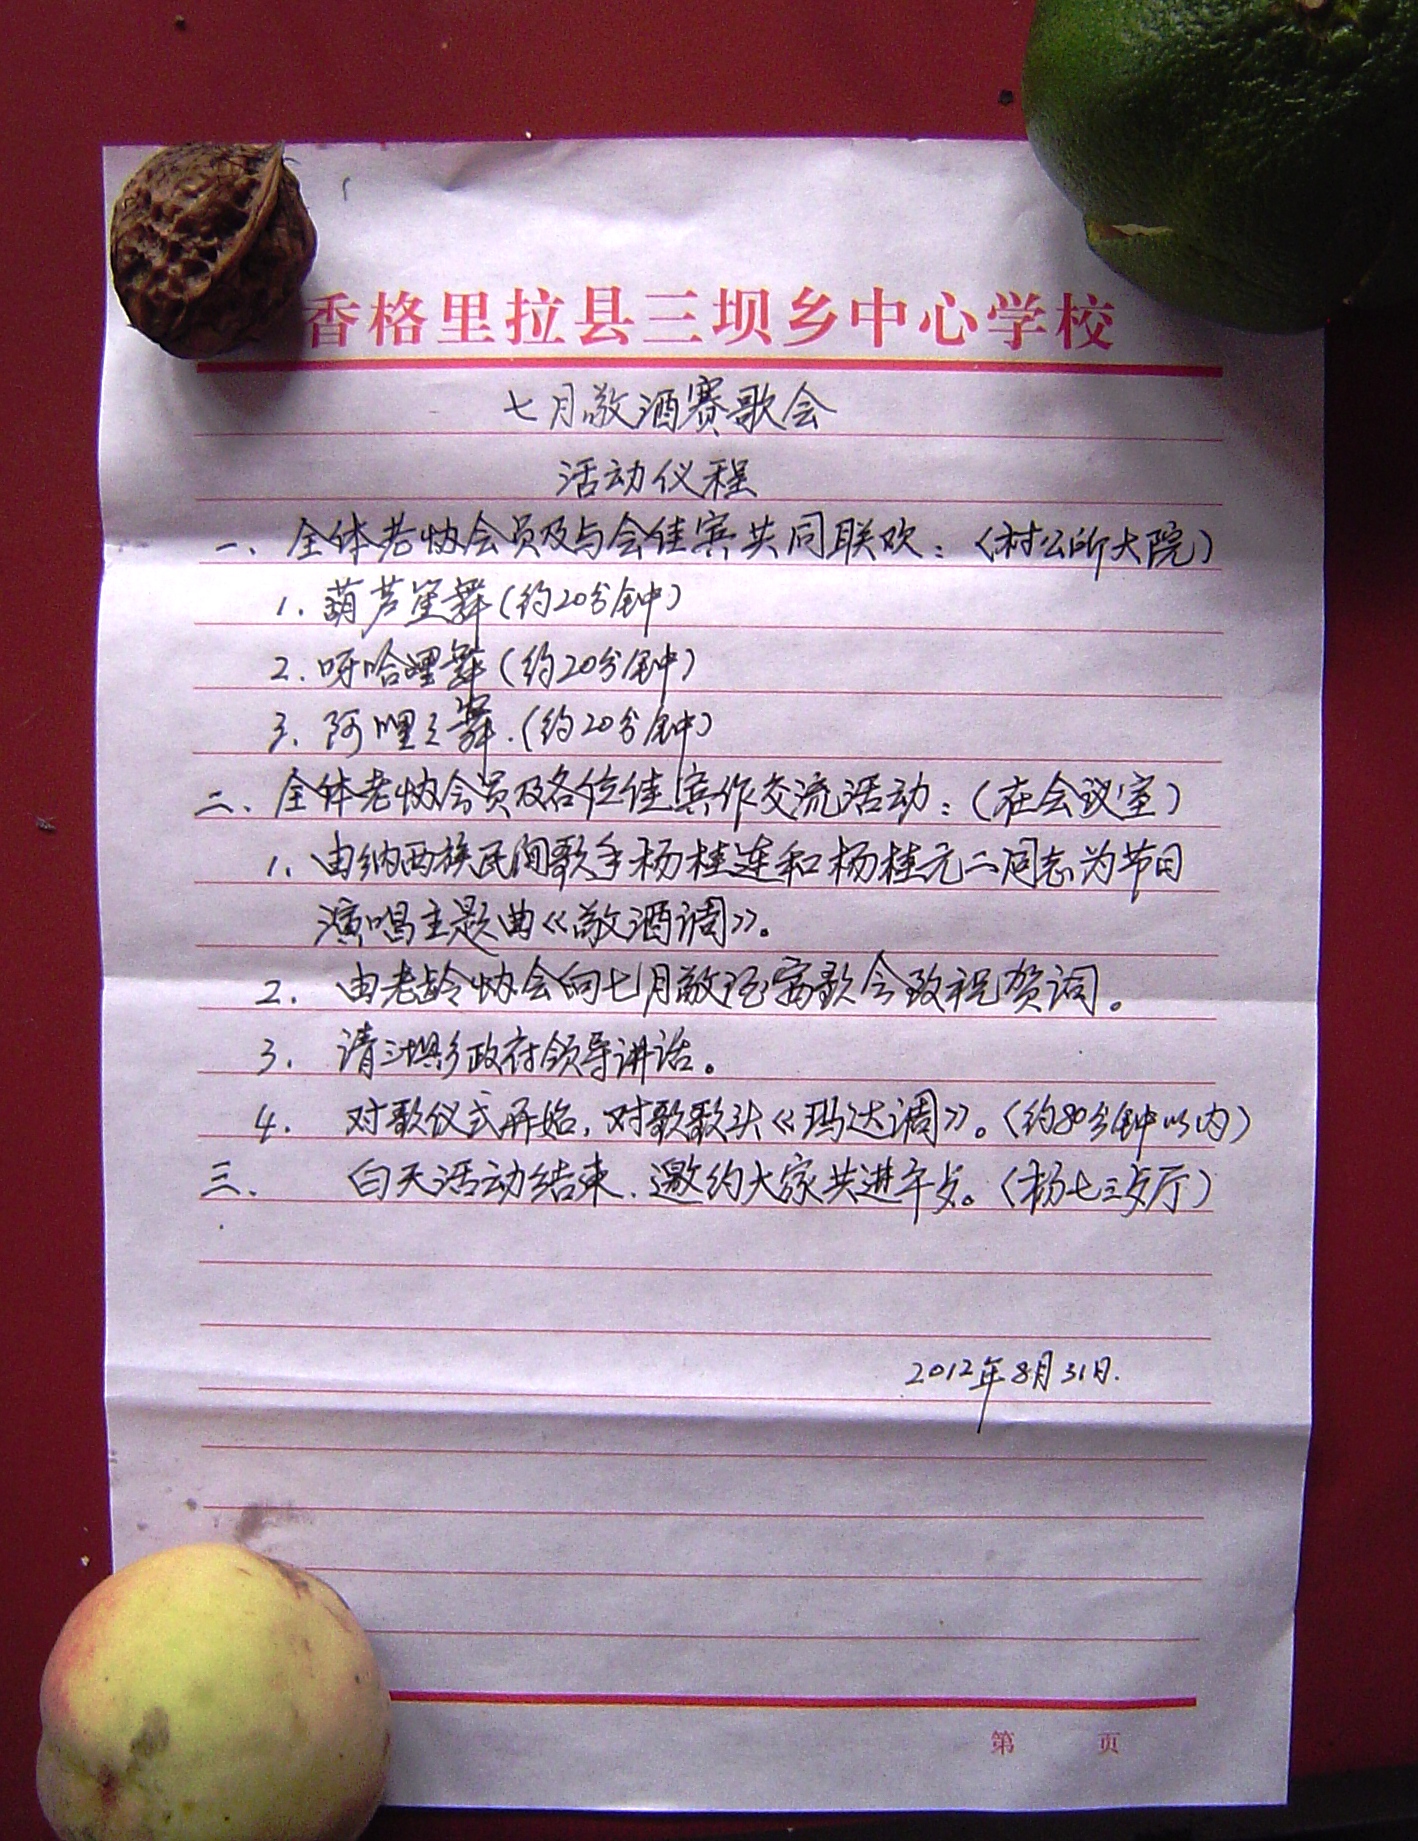 香格里拉县三坝乡中心学校
七月敬酒赛歌会
活动仪程
一、全体老协会员及与会佳宾共同联欢：（村公所大院）
1. 葫芦笙舞（约20分钟）
2. 呀哈哩舞（约20分钟）
3. 阿哩之舞.（约20分钟）
二、全体老协会员及各位佳宾作交流活动：（在会议室）
1. 由纳西族民间歌手杨桂连和杨桂元二同志为节日
演唱主题曲《敬酒调》。
2. 由老龄协会向七月敬酒赛歌会致祝贺词。
3. 请三坝乡政府领导讲话。
4. 对歌仪式开始，对歌歌头《玛达调》。（约80分钟以内）
三、 白天活动结束、邀约大家共进午餐。（杨七三餐厅）
2012年8月31日.
第 页